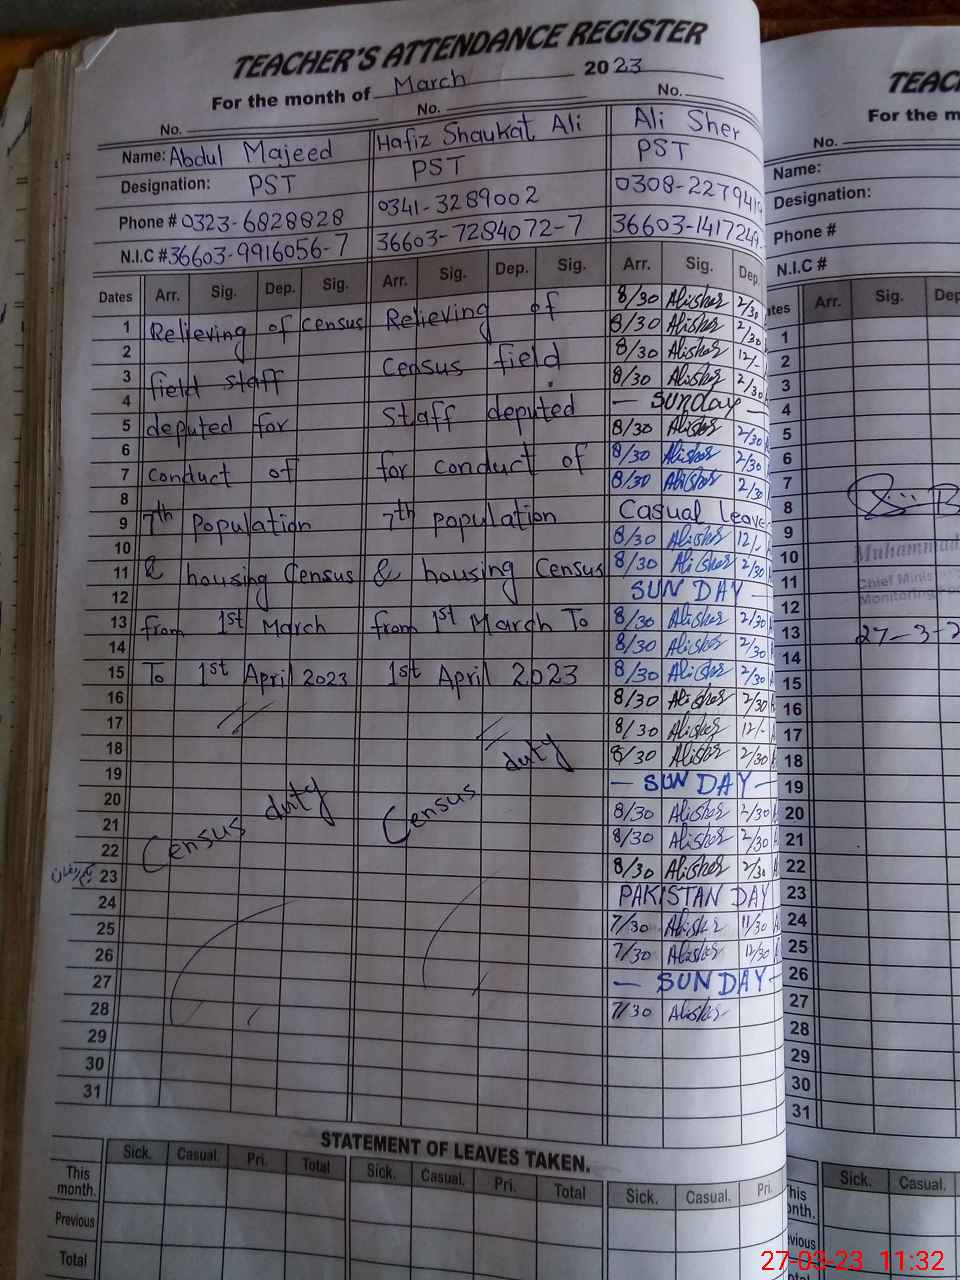 TEACHER'S ATTENDANCE REGISTER
For the month of March 2023
No. No. No.
Name: Abdul Majeed Hafiz Shaukat Ali Ali Sher
Designation: PST PST PST
Phone # 0323-6828828 0341-3289002 0308-227941
N.I.C # 36603-9916056-7 36603-7284072-7 36603-1417249-
Dates Arr. Sig. Dep. Sig. Arr. Sig. Dep. Sig. Arr. Sig. Dep.
1 Relieving of Census Relieving of 8/30 Alisher 2/30
2 8/30 Alisher 2/30
3 field staff Census field 8/30 Alisher 12/-
4 8/30 Alisher 2/30
5 deputed for staff deputed — Sunday —
6 8/30 Alisher 2/30
7 conduct of for conduct of 8/30 Alisher 2/30
8 8/30 Alisher 2/30
9 7th population 7th population Casual Leave
10 8/30 Alisher 12/-
11 & housing Census & housing Census 8/30 Alisher 2/30
12 SUNDAY —
13 from 1st March from 1st March To 8/30 Alisher 2/30
14 8/30 Alisher 2/30
15 To 1st April 2023 1st April 2023 8/30 Alisher 2/30
16 8/30 Alisher 2/30
17 8/30 Alisher 12/-
18 8/30 Alisher 2/30
19 — SUNDAY —
20 8/30 Alisher 2/30
21 Census duty Census duty 8/30 Alisher 2/30
22 8/30 Alisher 2/30
یکم رمضان 23 PAKISTAN DAY
24 7/30 Alisher 11/30
25 7/30 Alisher 11/30
26 — SUNDAY —
27 7/30 Alisher
28
29
30
31
STATEMENT OF LEAVES TAKEN.
Sick. Casual. Pri. Total Sick. Casual. Pri. Total Sick. Casual. Pri.
This month.
Previous
Total
TEAC
For the m
No.
Name:
Designation:
Phone #
N.I.C #
Arr. Sig. Dep
1
2
3
4
5
6
7
8
9
10 Muhammad
11 Chief Minis
12 Monitoring
13 27-3-2
14
15
16
17
18
19
20
21
22
23
24
25
26
27
28
29
30
31
Sick. Casual.
27-03-23 11:32